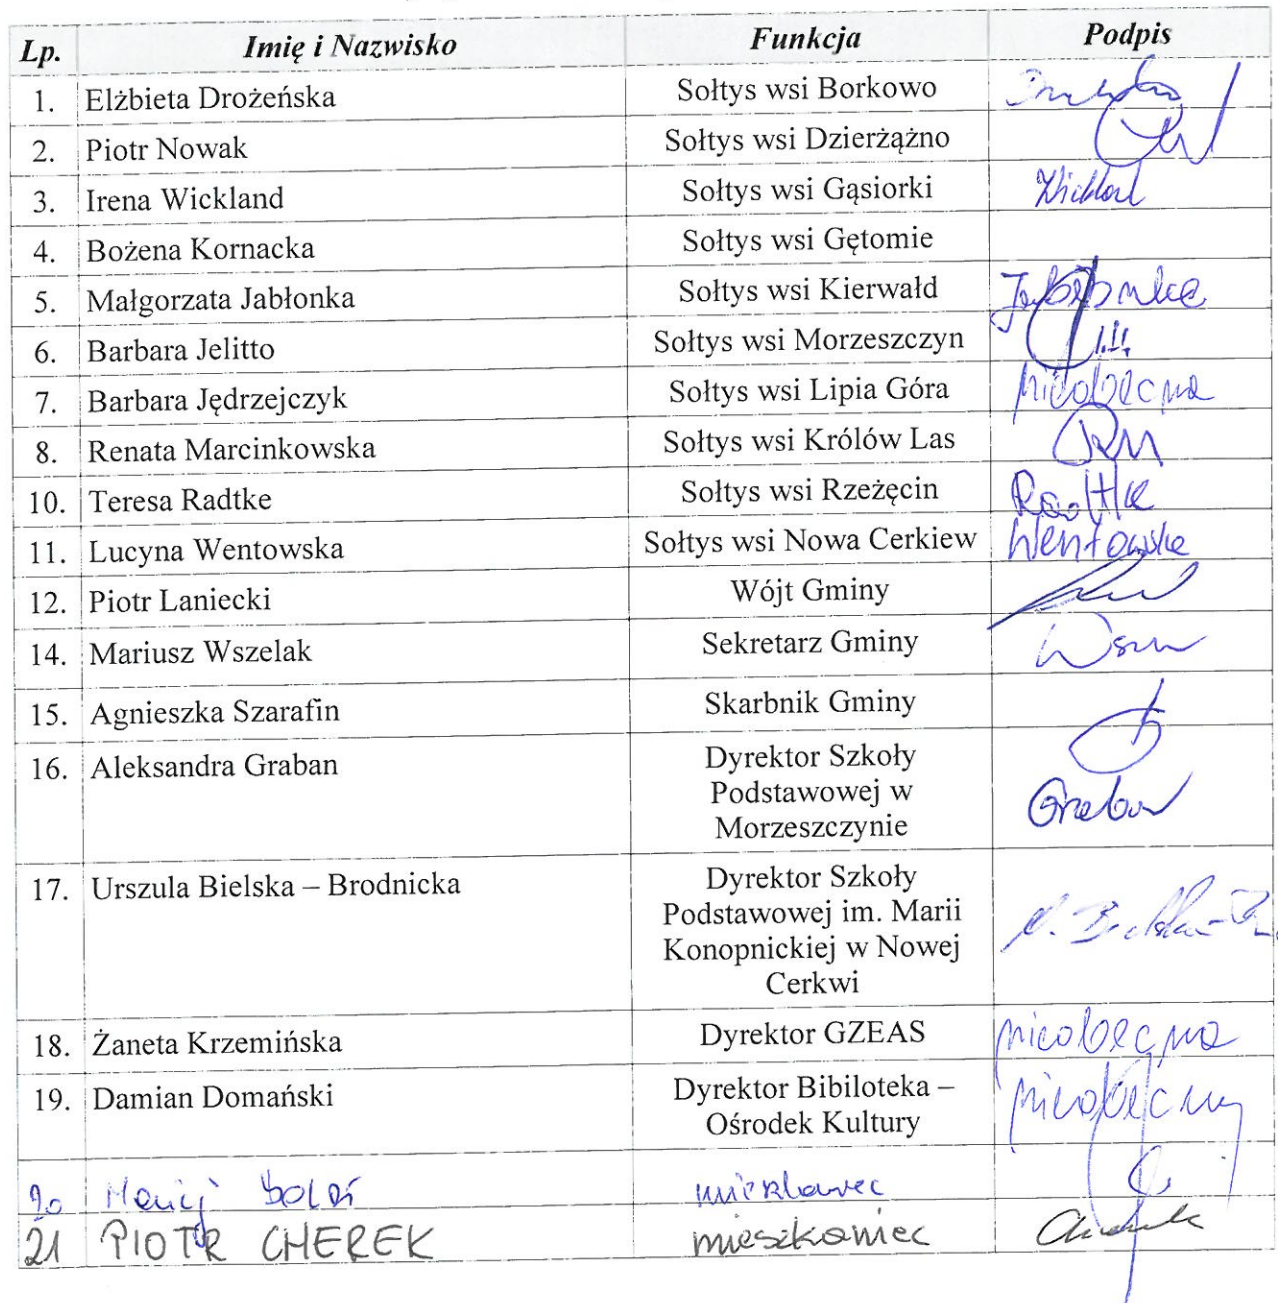 Lp. Imię i Nazwisko Funkcja Podpis
1. Elżbieta Drożeńska Sołtys wsi Borkowo
2. Piotr Nowak Sołtys wsi Dzierżążno
3. Irena Wickland Sołtys wsi Gąsiorki Wickland
4. Bożena Kornacka Sołtys wsi Gętomie
5. Małgorzata Jabłonka Sołtys wsi Kierwałd Jabłonka
6. Barbara Jelitto Sołtys wsi Morzeszczyn
7. Barbara Jędrzejczyk Sołtys wsi Lipia Góra nieobecna
8. Renata Marcinkowska Sołtys wsi Królów Las RM
10. Teresa Radtke Sołtys wsi Rzeżęcin Radtke
11. Lucyna Wentowska Sołtys wsi Nowa Cerkiew Wentowska
12. Piotr Laniecki Wójt Gminy
14. Mariusz Wszelak Sekretarz Gminy
15. Agnieszka Szarafin Skarbnik Gminy
16. Aleksandra Graban Dyrektor Szkoły
Podstawowej w
Morzeszczynie
Graban
17. Urszula Bielska – Brodnicka Dyrektor Szkoły
Podstawowej im. Marii
Konopnickiej w Nowej
Cerkwi
18. Żaneta Krzemińska Dyrektor GZEAS nieobecna
19. Damian Domański Dyrektor Bibiloteka –
Ośrodek Kultury
nieobecny
20 mieszkaniec
21 PIOTR CHEREK mieszkaniec Cherek